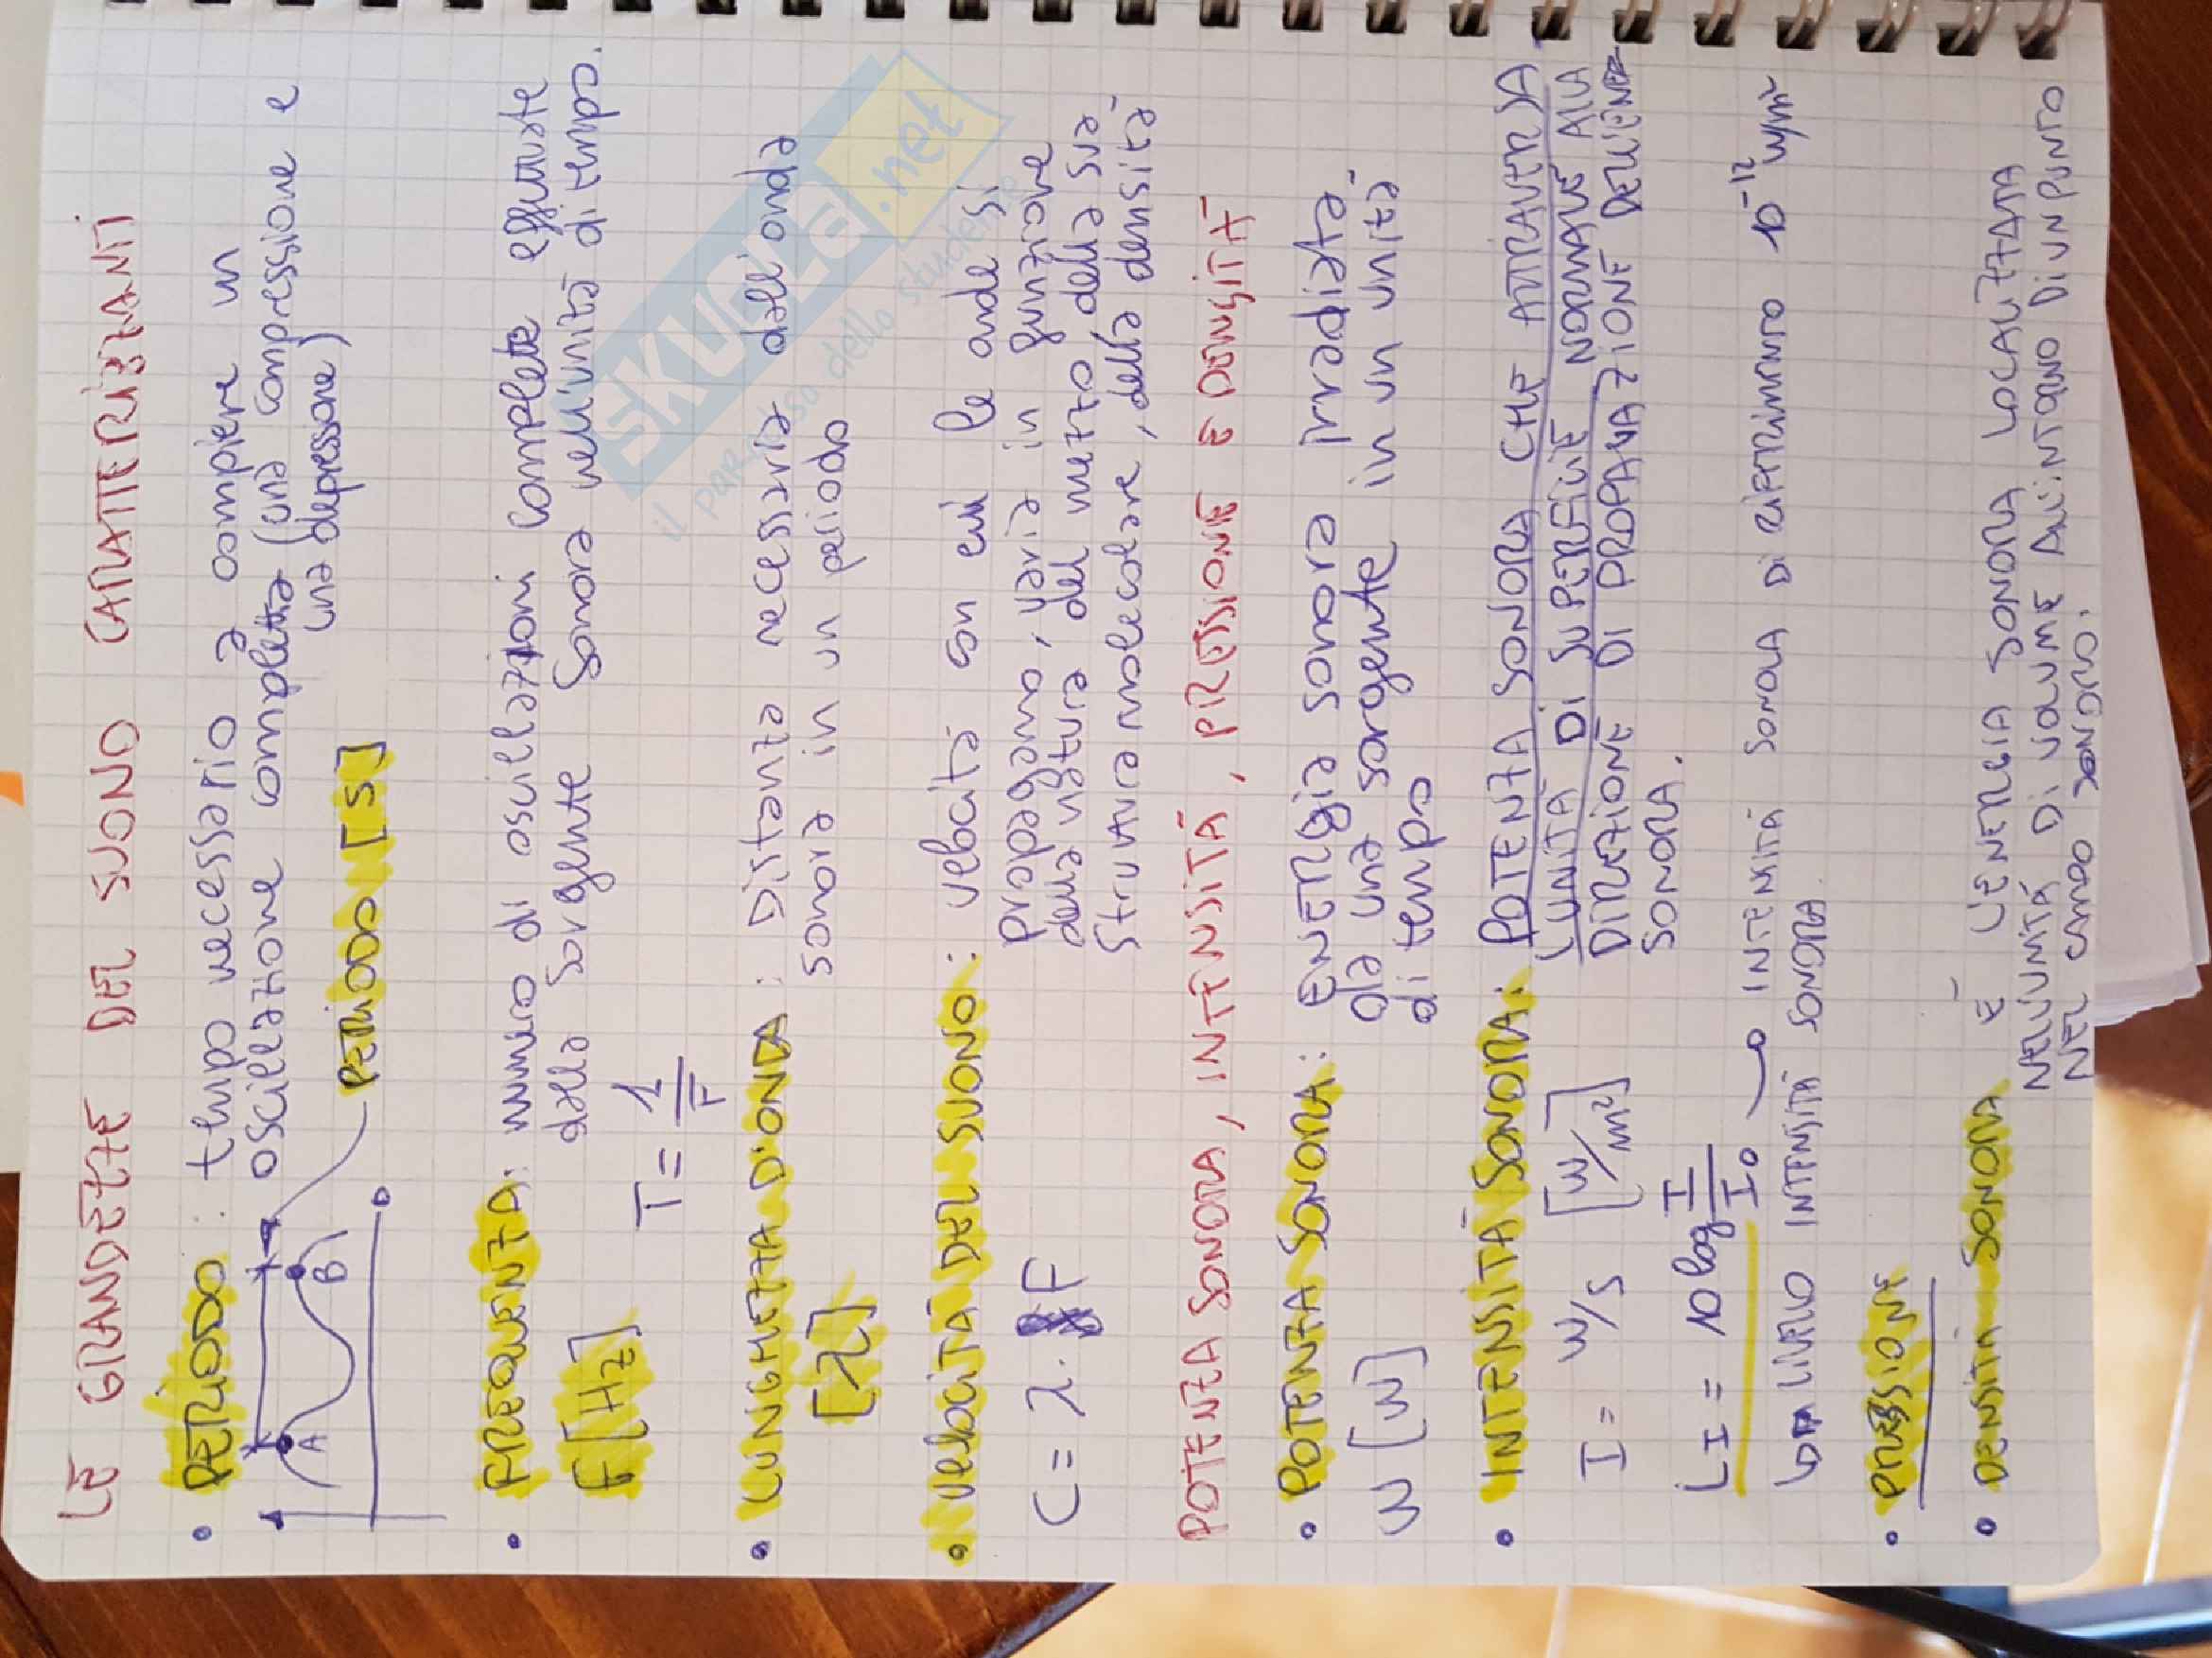 LE GRANDEZZE DEL SUONO CARATTERIZZANTI
• PERIODO : tempo necessario a compiere un
oscillazione completa (una compressione e
una depressione)
A B
PERIODO [S]
• FREQUENZA: numero di oscillazioni complete effettuate
dalla sorgente sonora nell'unità di tempo.
F[Hz]
T = 1/F
• LUNGHEZZA D'ONDA : Distanza necessaria dall'onda
sonora in un periodo
[λ]
• VELOCITÀ DEL SUONO : velocità con cui le onde si
propagano, varia in funzione
della natura del mezzo, della sua
struttura molecolare, della densità
C = λ · F
POTENZA SONORA, INTENSITÀ, PRESSIONE E DENSITÀ
• POTENZA SONORA : ENERgia sonora irradiata
da una sorgente in un unità
di tempo
W [W]
• INTENSITÀ SONORA: POTENZA SONORA CHE ATTRAVERSA
L'UNITÀ DI SUPERFICIE NORMALE ALLA
DIREZIONE DI PROPAGAZIONE DELL'ENER
SONORA.
I = W/S [W/m²]
LI = 10 log I/I0 → INTENSITÀ SONORA DI RIFERIMENTO 10⁻¹² W/m²
↳ LIVELLO INTENSITÀ SONORA.
• PRESSIONE
• DENSITÀ SONORA È L'ENERGIA SONORA LOCALIZZATA
NELL'UNITÀ DI VOLUME ALL'INTORNO DI UN PUNTO
NEL CAMPO SONORO.
SKUOLA.net
il paradiso dello studente